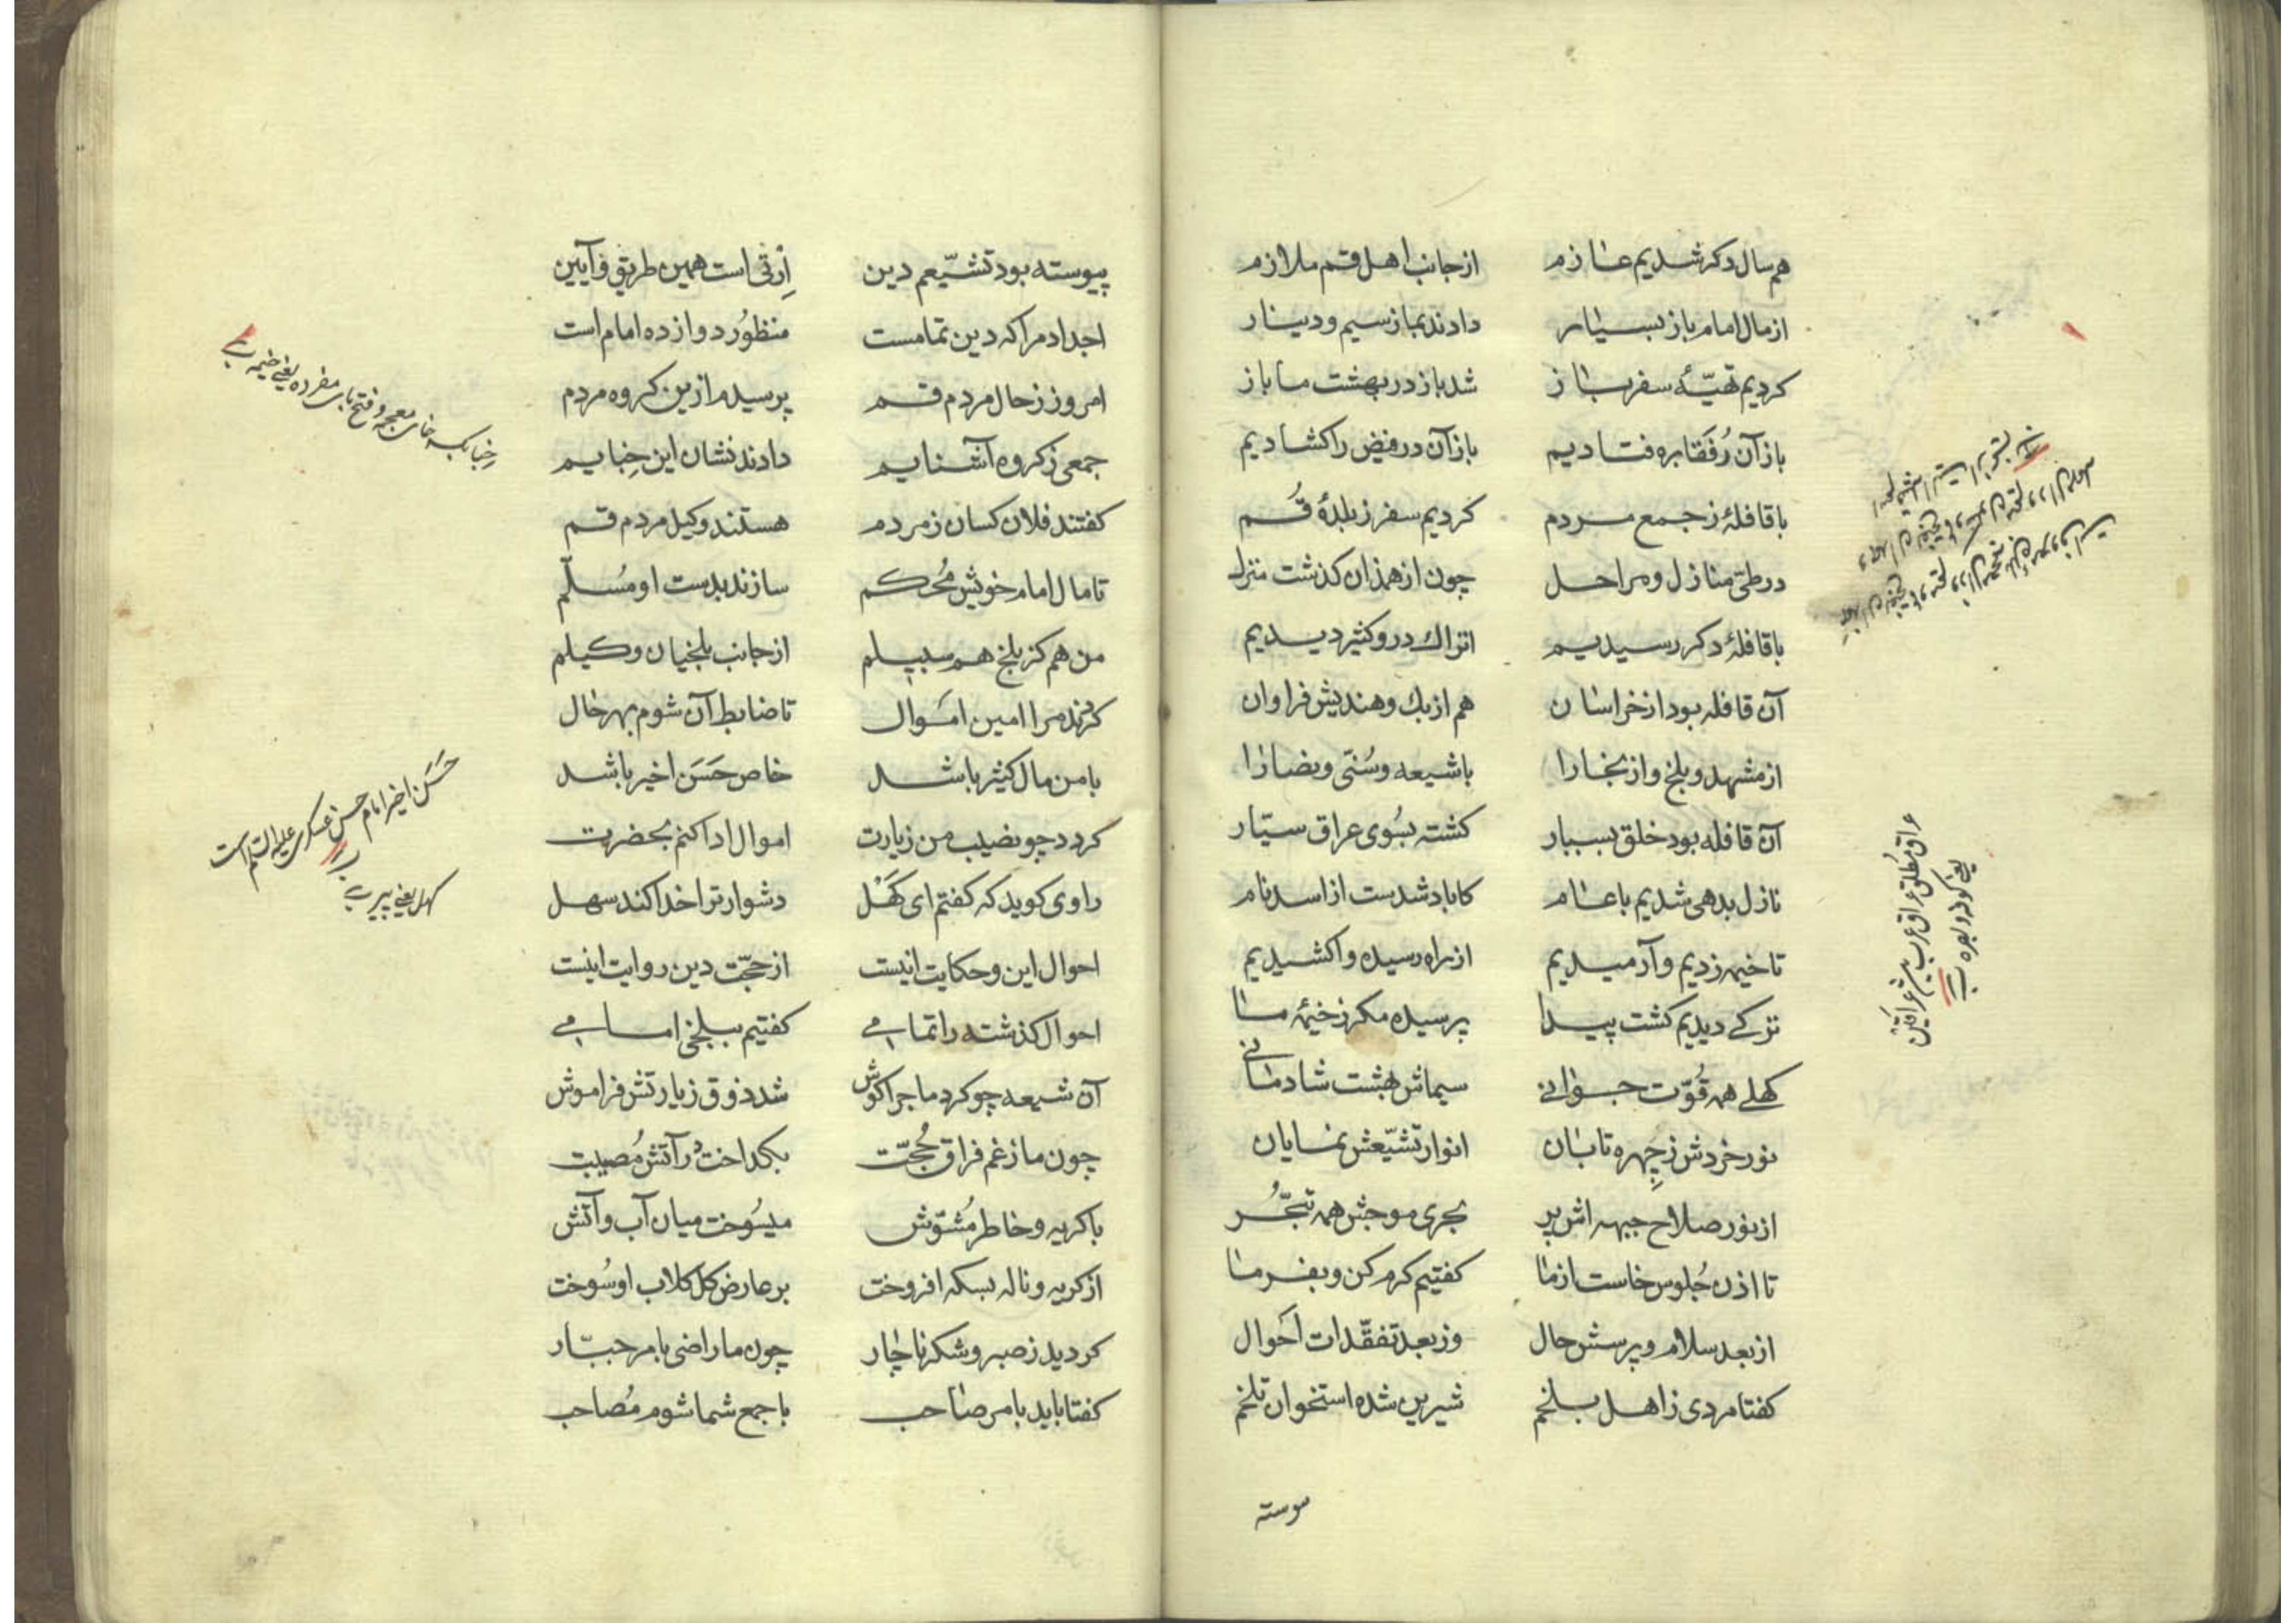 هم سال دکر شدیم عازم از جانب اهل قم ملازم
از مال امام باز بسیار دادند بما ز سیم و دینار
کردیم تهیّهٔ سفر ساز شد باز در بهشت ما باز
باز آن رُفَقا بره فتادیم باز آن در فیض را کشادیم
با قافلهٔ ز جمع مردم کردیم سفر ز بلدهٔ قُم
در طیّ منازل و مراحل چون از همذان کذشت منزل
با قافلهٔ دکر رسیدیم اتراك درو کثیر دیدیم
آن قافله بود از خراسان هم ازبك و هندیش فراوان
از مشهد و بلخ و از بخارا با شیعه و سُنّی و نصارا
آن قافله بود خلق بسیار کشته بسُوی عراق سیّار
نازل بدهی شدیم با عام کاباد شدست از اسد نام
تا خیمه زدیم و آرمیدیم از راه رسیده واکشیدیم
ترکے دیدیم کشت پیدا پرسیده مکر ز خیمهٔ ما
کهلے همه قُوّت جوانے سیماش بهشت شادمانے
نور خردش ز چِهره تابان انوار تشیّعش نمایان
از نور صلاح جبهه اش پر بحری موجش همه تبحُّر
تا اذن جُلوس خاست از ما کفتیم کرم کن و بفرما
از بعد سلام و پرسش حال وز بعد تفقّدات اَحوال
کفتا مردی ز اهل بلخم شیرین شده استخوان تلخم
عراق مطلق عراق عرب
یعنی کوفه و بصره
موسته
پیوسته بود تشیّعم دین اِرثی است همین طریق و آیین
اجداد مرا که دین تمامست منظُور دوازده امام است
امروز ز حال مردم قم پرسیدم ازین کروه مردم
جمعی ز کروه آشنایم دادند نشان این خِبایم
کفتند فلان کسان ز مردم هستند وکیل مردم قم
تا مال امام خویش مُحکم سازند بدست او مُسلّم
من هم کز بلخ هم سبیلم از جانب بلخیان وکیلم
کردند مرا امین اَموال تا ضابط آن شوم بهر حال
با من مال کثیر باشد خاص حَسَن اخیر باشد
کردد چو نصیب من زیارت اموال ادا کنم بحضرت
راوی کوید که کفتم ای کَهْل دشوار ترا خدا کند سهل
احوال این و حکایت اینست از حجّت دین روایت اینست
احوال کذشته را تمامے کفتیم ببلخی امامے
آن شیعه چو کرد ماجرا کوش شد ذوق زیارتش فراموش
چون ما ز غم فراق حُجّت بکداخت در آتش مُصیبت
با کریه و خاطر مُشوّش میسُوخت میان آب و آتش
از کریه و ناله بسکه افروخت بر عارض کل کلاب او سُوخت
کردید ز صبر و شکر ناچار چون ما راضی بامر جبّار
کفتا باید بامر صاحب با جمع شما شوم مُصاحب
خبا بکسر خای معجمه و فتح بای مفرده یعنی خیمه
حَسَن اخیر امام حسن عسکری علیه السلام است
کهل یعنی پیر